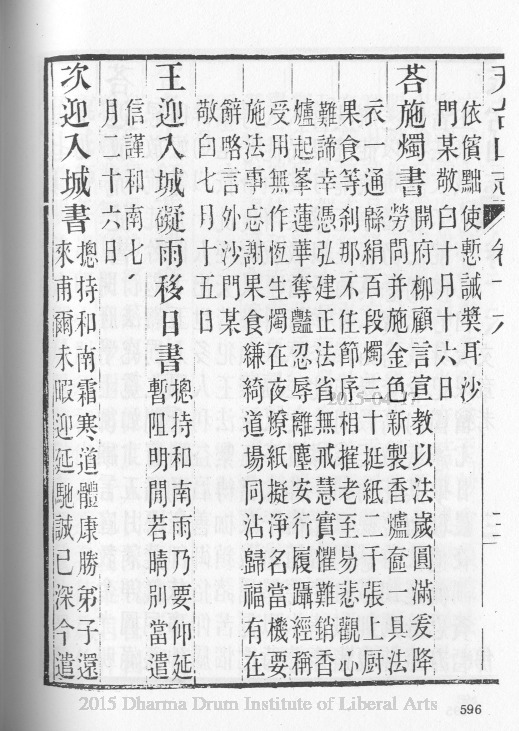 依儐黜使慙誠奬耳沙
門某敬白十月十六日
荅施燭書
開府柳顧言宣教以法歲圓滿爰降
勞問并施金色新製香爐奩一具法
衣一通緜絹百段燭三十挺紙二千張上厨
果食等刹那不住節序相摧老至易悲觀心
難諦幸憑弘建正法省無戒慧實懼難銷香
爐起峯蓮華奪豔忍辱離塵安行履躡經稱
受用無作恆生燭在夜燎紙擬淨名當機要
施法事忘謝果食鎌綺道場同沾歸福有在
辭略言外沙門某
敬白七月十五日
王迎入城礙雨移日書
摠持和南雨乃要仰延
暫阻明閒若晴別當遣
信謹和南七
月二十六日
次迎入城書
摠持和南霜寒道體康勝弟子還
來甫爾未暇迎延馳誠已深今遣
2015 Dharma Drum Institute of Liberal Arts
596